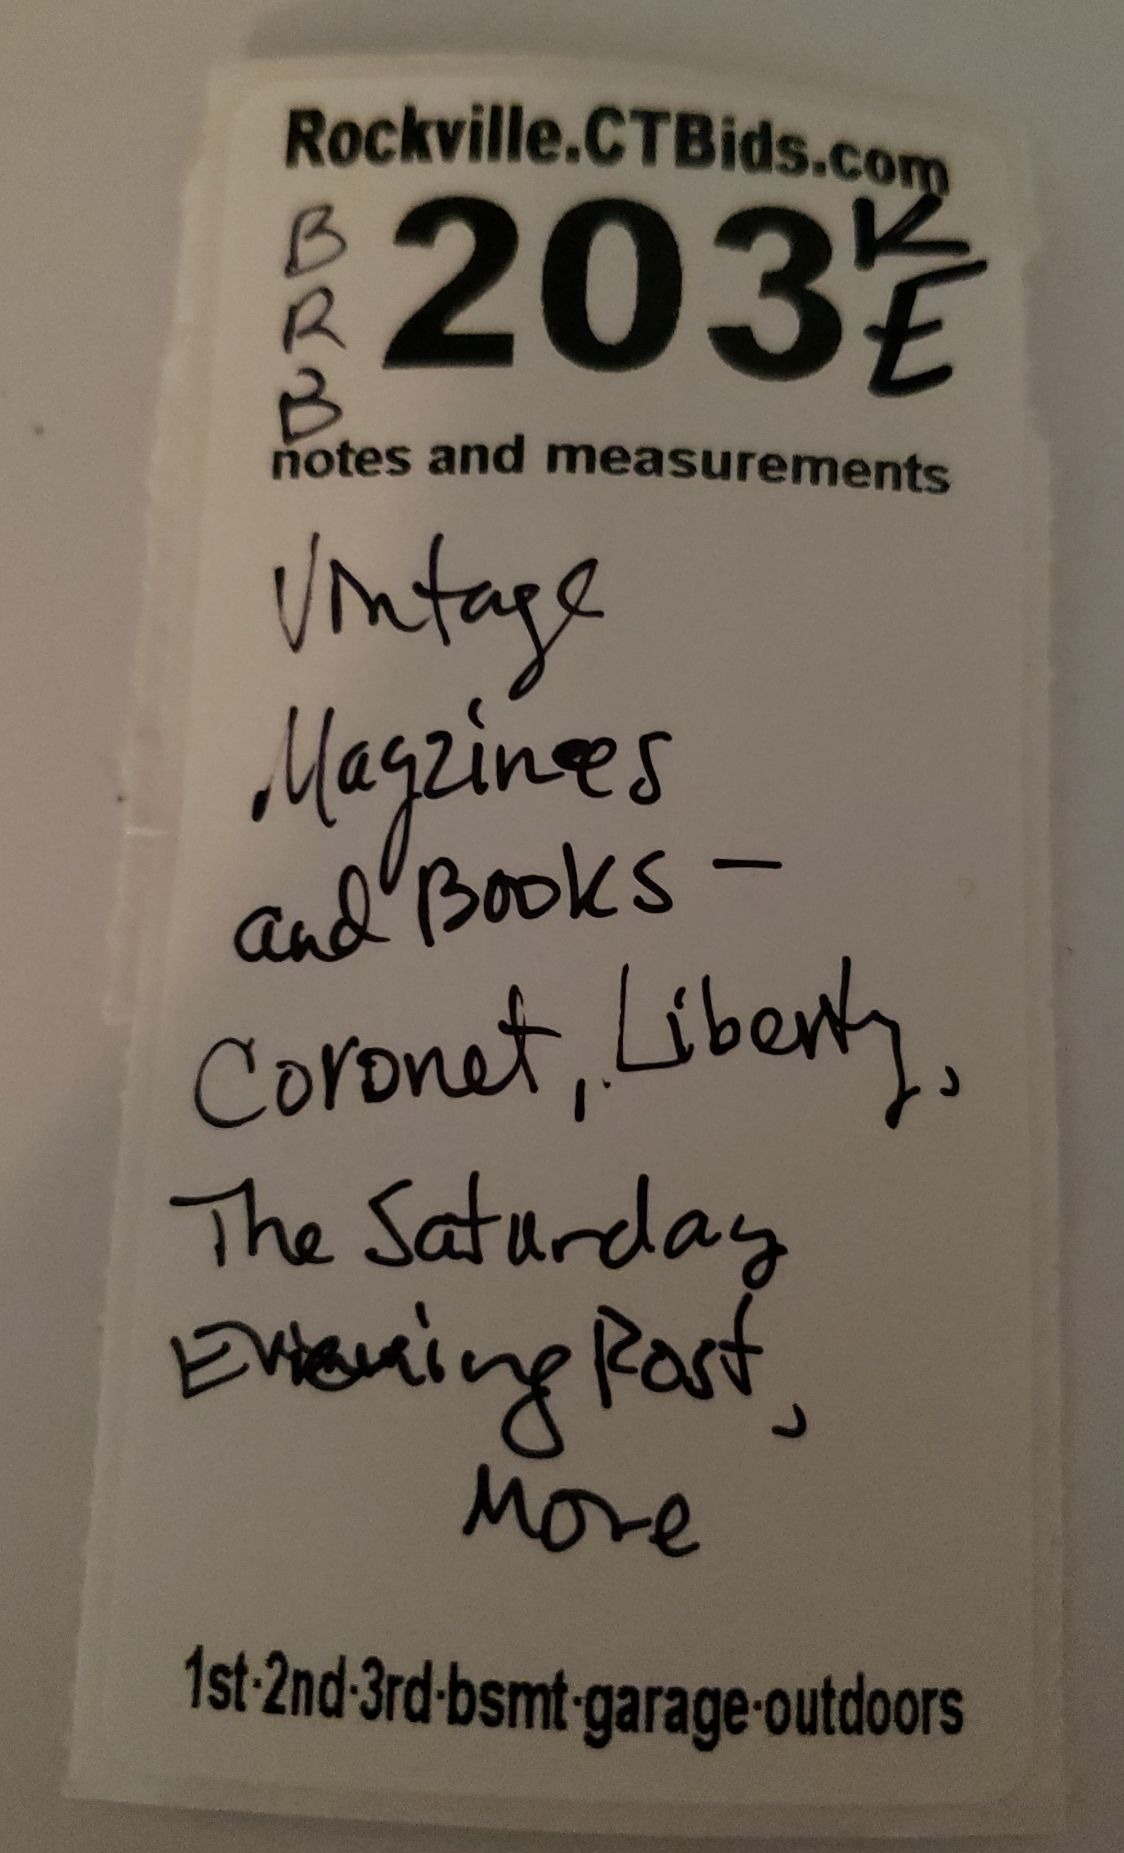 Rockville.CTBids.com
B
R
B
203
K
E
notes and measurements
Vintage
Magzines
and Books -
Coronet, Liberty,
The Saturday
Evening Post,
More
1st·2nd·3rd·bsmt·garage·outdoors